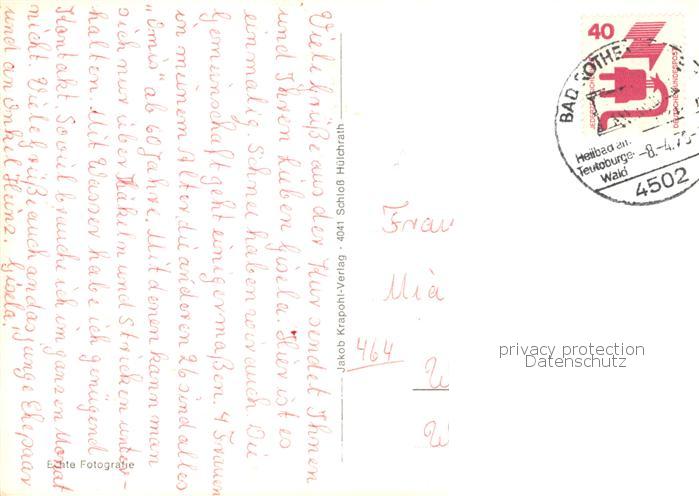 Viele Grüße aus der Kur sendet Ihnen
und Ihren Lieben Gisela. Hier ist es
einmalig. Schnee haben wir auch. Die
Gemeinschaft geht einigermaßen. 4 Frauen
in meinem Alter, die anderen 26 sind alles
"Omis" ab 60 Jahre. Mit denen kann man
sich nur über Häkeln und Stricken unter-
halten. Mit Wasser habe ich genügend
Kontakt. So viel brauche ich im ganzen Monat
nicht. Viele Grüße auch an das junge Ehepaar
und an Onkel Heinz. Gisela.
Echte Fotografie
Jakob Krapohl-Verlag · 4041 Schloß Hülchrath
40
DEUTSCHE BUNDESPOST
BAD ROTHE
Heilbad am
Teutoburger
Wald
-8.-4.75-
4502
Frau
Mia
464
W
W
privacy protection
Datenschutz